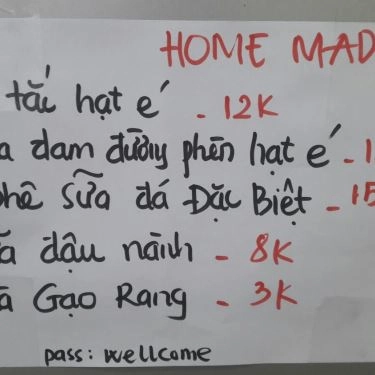 HOME MAD
tắc hạt é - 12K
a dam đường phèn hạt é - 1
phê sữa đá Đặc Biệt - 15
ã dậu nành - 8K
à Gạo Rang - 3K
pass: wellcome